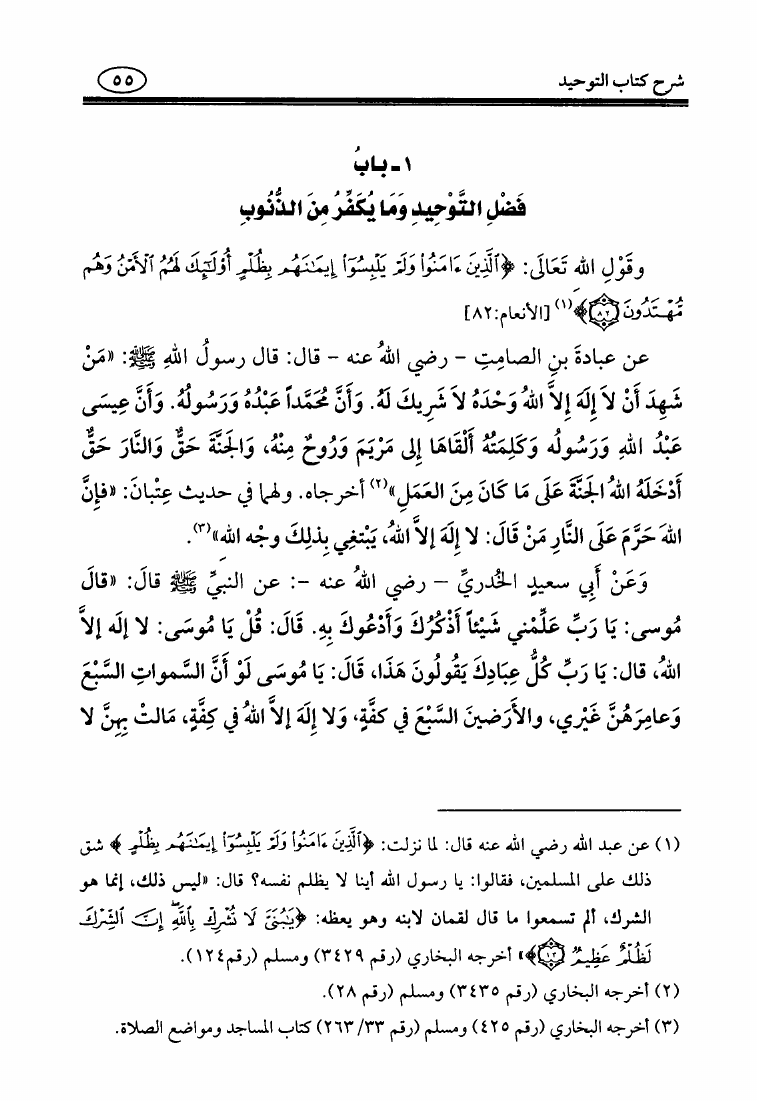 شرح كتاب التوحيد ٥٥
١ـ بابُ
فَضْلِ التَّوْحِيدِ وَمَا يُكَفِّرُ مِنَ الذُّنُوبِ
وقَوْلِ الله تَعَالَى: ﴿ٱلَّذِينَ ءَامَنُوا۟ وَلَمْ يَلْبِسُوٓا۟ إِيمَـٰنَهُم بِظُلْمٍ أُو۟لَـٰٓئِكَ لَهُمُ ٱلْأَمْنُ وَهُم
مُّهْتَدُونَ ﴿٨٢﴾﴾(١) [الأنعام:٨٢]
عن عبادةَ بنِ الصامتِ – رضي اللهُ عنه – قال: قال رسولُ اللهِ ﷺ: «مَنْ
شَهِدَ أَنْ لاَ إِلَهَ إِلاَّ اللهُ وَحْدَهُ لاَ شَرِيكَ لَهُ. وَأَنَّ مُحَمَّداً عَبْدُهُ وَرَسُولُهُ. وَأَنَّ عِيسَى
عَبْدُ اللهِ وَرَسُولُه وَكَلِمَتُهُ أَلْقَاهَا إِلى مَرْيَمَ وَرُوحٌ مِنْهُ، وَالجَنَّةَ حَقٌّ وَالنَّارَ حَقٌّ
أَدْخَلَهُ اللهُ الجَنَّةَ عَلَى مَا كَانَ مِنَ العَمَلِ»(٢) أخرجاه. ولهما في حديث عِتْبانَ: «فإِنَّ
اللهَ حَرَّمَ عَلَى النَّارِ مَنْ قَالَ: لا إِلَهَ إلاَّ اللهُ، يَبْتَغِي بِذلِكَ وجْه اللهِ»(٣).
وَعَنْ أَبي سعيدٍ الخُدريِّ – رضي اللهُ عنه –: عن النبيِّ ﷺ قَالَ: «قَالَ
مُوسى: يَا رَبِّ عَلِّمْني شَيْئاً أَذْكُرُكَ وَأَدْعُوكَ بِهِ. قَالَ: قُلْ يَا مُوسَى: لا إِلَه إِلاَّ
اللهُ، قال: يَا رَبِّ كُلُّ عِبَادِكَ يَقُولُونَ هَذَا، قَالَ: يَا مُوسَى لَوْ أَنَّ السَّمواتِ السَّبْعَ
وَعامِرَهُنَّ غَيْري، والأَرَضينَ السَّبْعَ في كفَّةٍ، وَلا إِلَهَ إلاَّ اللهُ في كِفَّةٍ، مَالتْ بِهِنَّ لا
(١) عن عبد الله رضي الله عنه قال: لما نزلت: ﴿ٱلَّذِينَ ءَامَنُوا۟ وَلَمْ يَلْبِسُوٓا۟ إِيمَـٰنَهُم بِظُلْمٍ﴾ شق
ذلك على المسلمين، فقالوا: يا رسول الله أينا لا يظلم نفسه؟ قال: «ليس ذلك، إنما هو
الشرك، ألم تسمعوا ما قال لقمان لابنه وهو يعظه: ﴿يَـٰبُنَىَّ لَا تُشْرِكْ بِٱللَّهِ ۖ إِنَّ ٱلشِّرْكَ
لَظُلْمٌ عَظِيمٌ ﴿١٣﴾﴾» أخرجه البخاري (رقم ٣٤٢٩) ومسلم (رقم١٢٤).
(٢) أخرجه البخاري (رقم ٣٤٣٥) ومسلم (رقم ٢٨).
(٣) أخرجه البخاري (رقم ٤٢٥) ومسلم (رقم ٢٦٣/٣٣) كتاب المساجد ومواضع الصلاة.